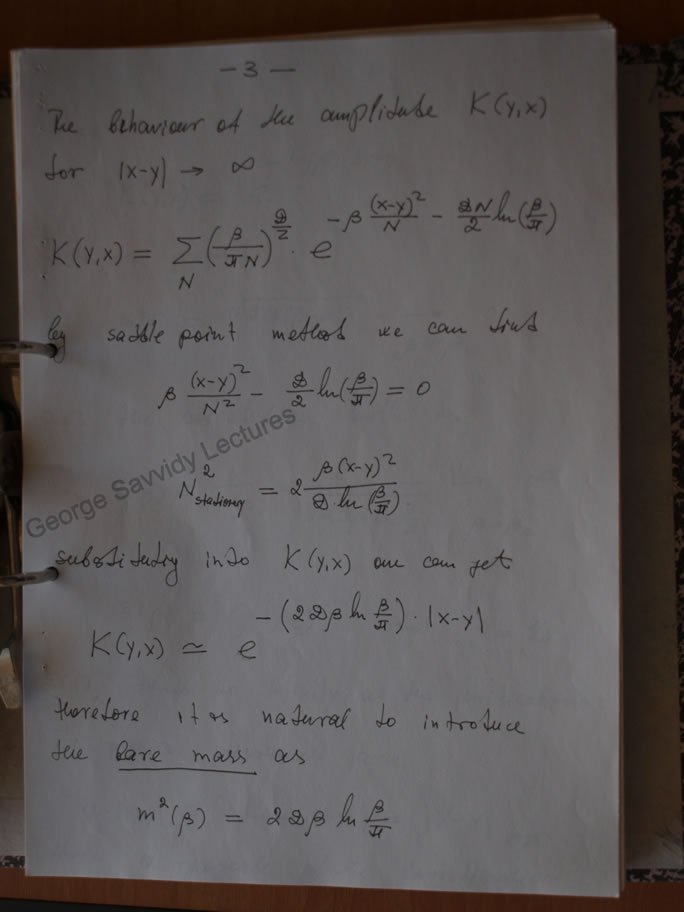 — 3 —
The behaviour of the amplitude K(y,x)
for |x-y| → ∞
K(y,x) = Σ_N (β/πN)^{D/2} · e^{-β (x-y)²/N - DN/2 ln(β/π)}
by saddle point method we can find
β (x-y)²/N² - D/2 ln(β/π) = 0
N²_stationary = 2 β(x-y)²/(D · ln(β/π))
George Savvidy Lectures
substituting into K(y,x) one can get
K(y,x) ≃ e^{-(2Dβ ln β/π) · |x-y|}
therefore it is natural to introduce
the bare mass as
m²(β) = 2Dβ ln β/π